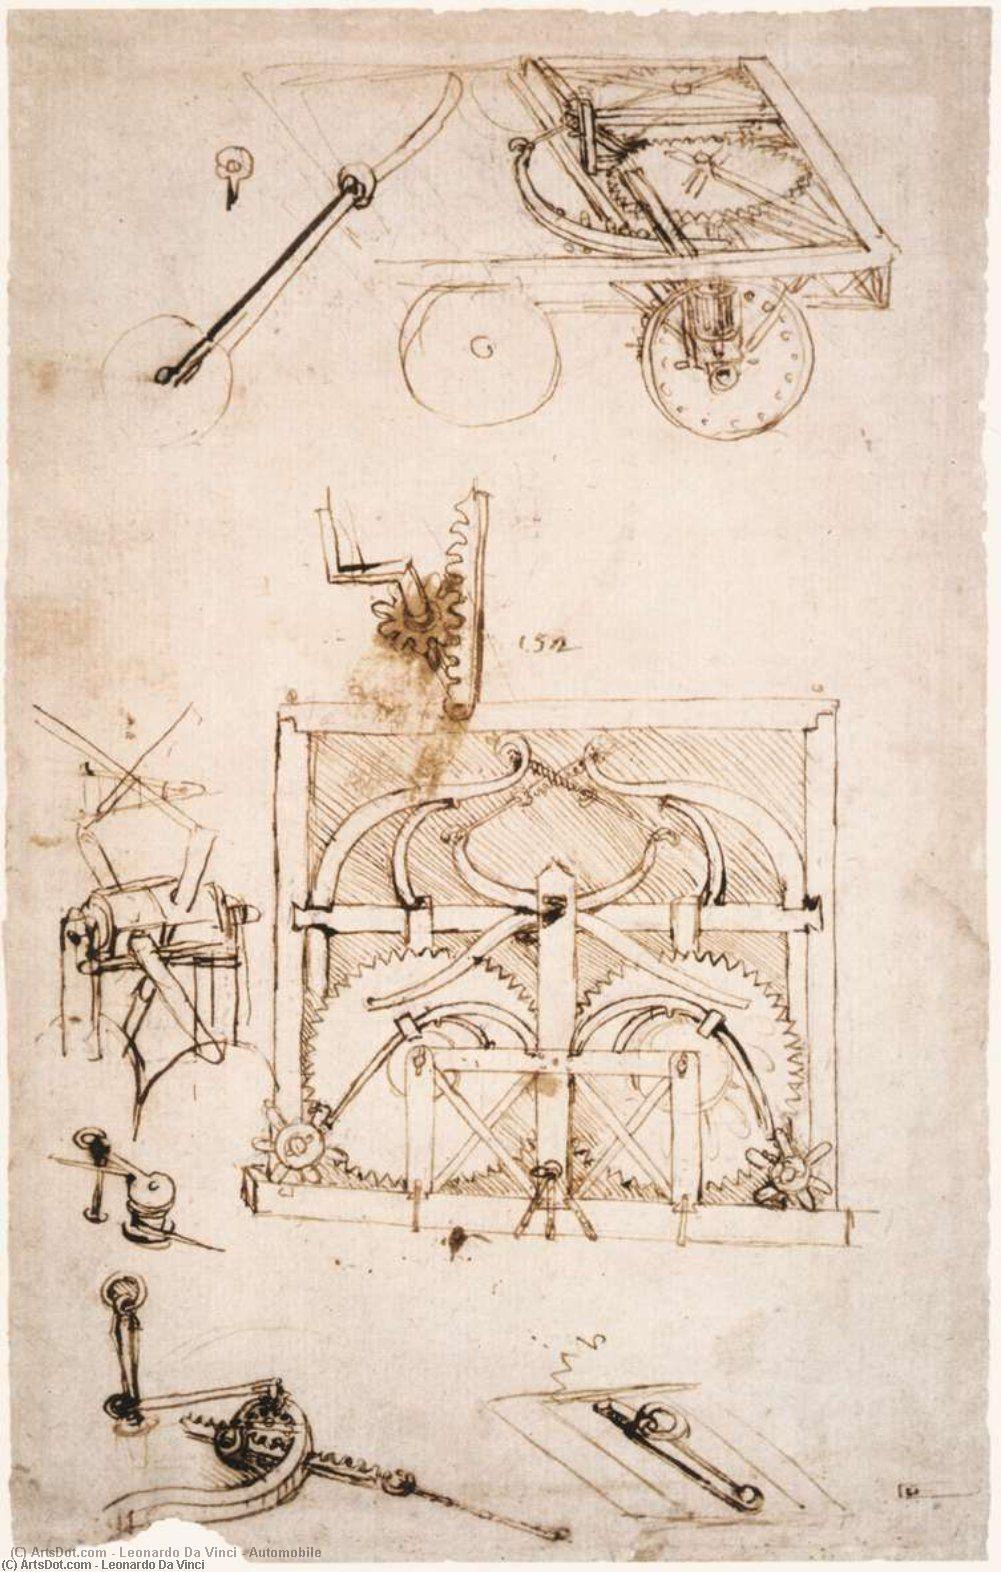 (C) ArtsDot.com - Leonardo Da Vinci - Automobile
(C) ArtsDot.com - Leonardo Da Vinci